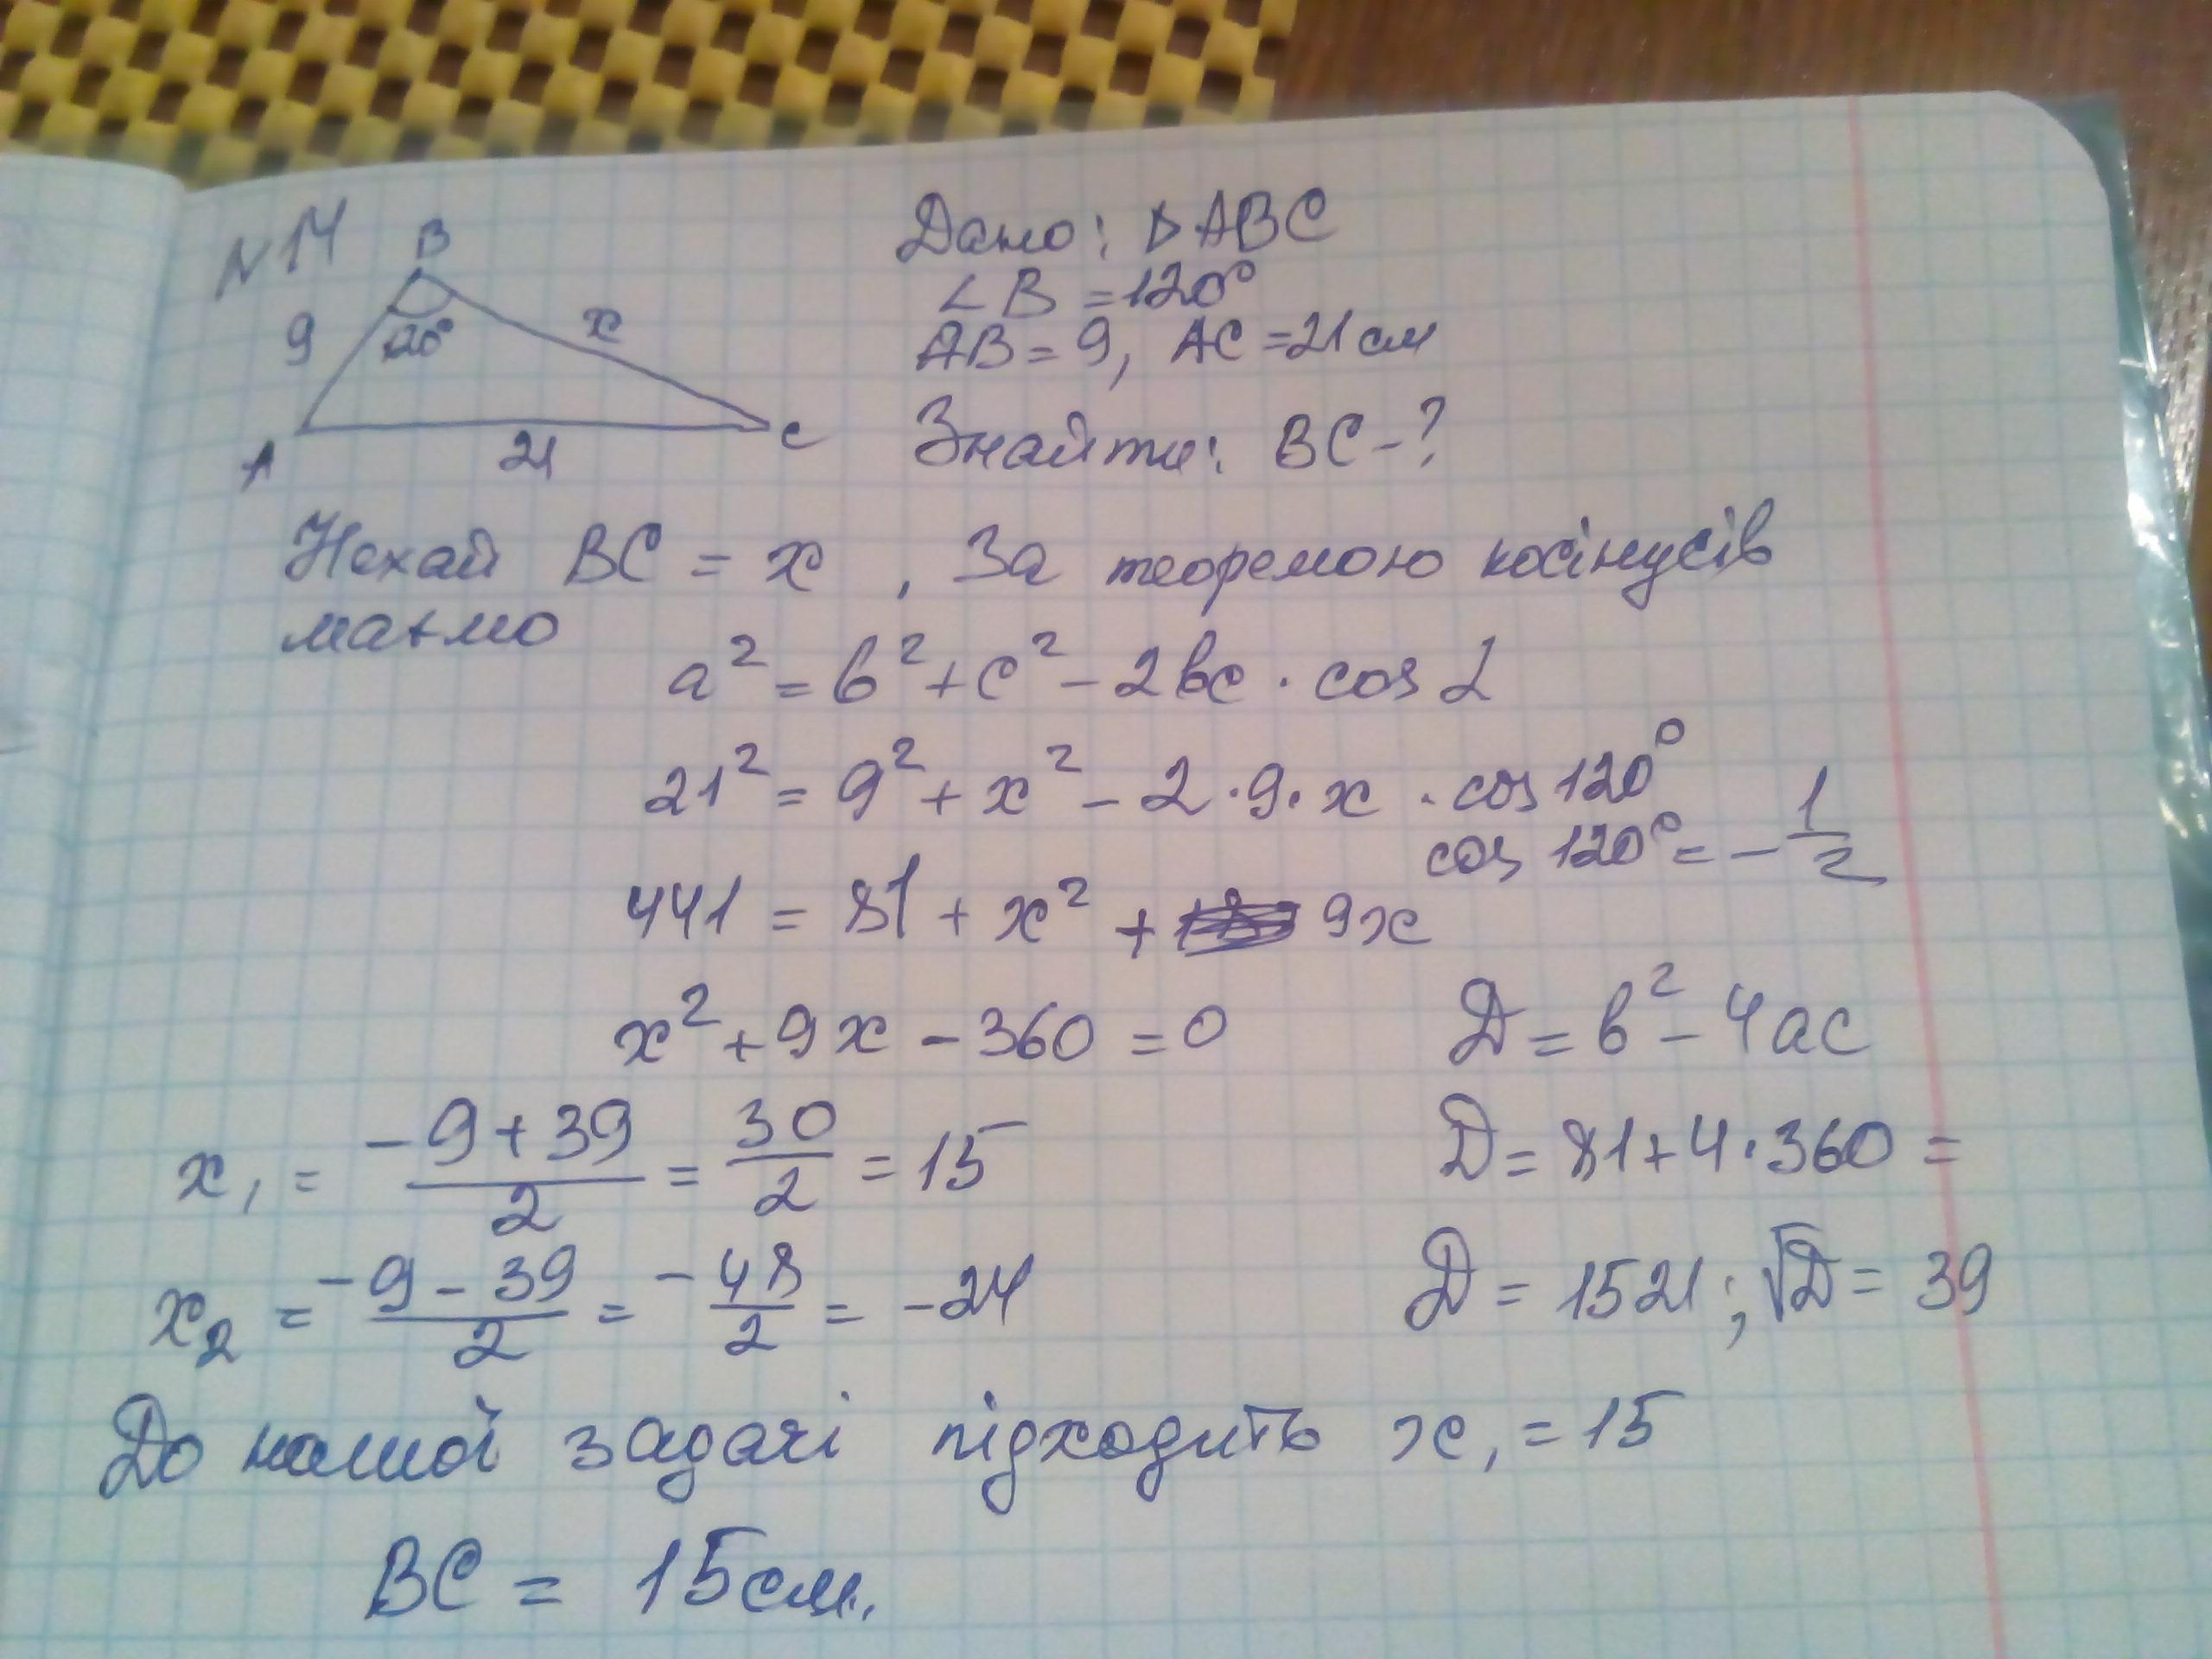 N 14
B
9
120°
x
A
21
C
Дано: ΔABC
∠B = 120°
AB = 9, AC = 21 см
Знайти: BC - ?
Нехай BC = x, За теоремою косінусів
маємо
a² = b² + c² - 2bc · cos α
21² = 9² + x² - 2 · 9 · x · cos 120°
cos 120° = - 1/2
441 = 81 + x² + 9x
x² + 9x - 360 = 0
D = b² - 4ac
x₁ = (-9 + 39)/2 = 30/2 = 15
D = 81 + 4 · 360 =
x₂ = (-9 - 39)/2 = -48/2 = -24
D = 1521; √D = 39
До нашої задачі підходить x₁ = 15
BC = 15 см.